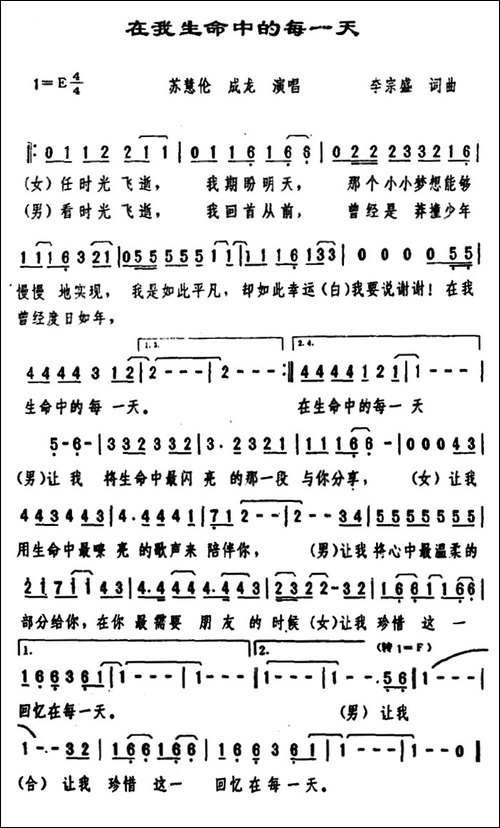 在我生命中的每一天
1=E 4/4 苏慧伦 成龙 演唱 李宗盛 词曲
‖: 0 1 1 2 2 1 1 | 0 1 1 6 1 6 6 | 0 2 2 2 2 3 3 2 1 6 |
(女)任时光飞逝, 我期盼明天, 那个小小梦想能够
(男)看时光飞逝, 我回首从前, 曾经是 莽撞少年
1 1 1 6 3 2 1 | 0 5 5 5 5 5 1 1 | 1 1 1 6 1 3 3 | 0 0 0 0 5 5 |
慢慢 地实现, 我是如此平凡, 却如此幸运 (白)我要说谢谢! 在我
曾经度日如年,
1. 3. 2. 4.
4 4 4 4 3 1 2 | 2 - - - | 2 - - - :‖ 4 4 4 4 1 2 1 | 1 - - - |
生命中的每 一天。 在生命中的每一天
5 - 6 - | 3 3 2 3 3 2 | 3 . 2 3 2 1 | 1 1 1 6 6 - | 0 0 0 4 3 |
(男)让 我 将生命中最闪 亮 的那一段 与你分享, (女)让我
4 4 3 4 4 3 | 4 . 4 4 4 1 | 7 1 2 - - | 2 - - 3 4 | 5 5 5 5 5 5 5 |
用生命中最嘹 亮 的歌声来 陪伴你, (男)让我 将心中最温柔的
2 1 7 1 1 4 3 | 4 . 4 4 4 4 3 | 2 3 2 2 - 3 2 | 1 6 6 1 1 6 6 |
部分给你,在你 最需要 朋友 的 时候 (女)让我 珍惜 这 一
1. 2. (转1=F)
1 6 6 3 6 1 | 1 - - - | 1 - - - | 1 - - 5 6 | 1 - - - |
回忆在每一天。 (男) 让我
1 - - 3 2 | 1 6 6 1 6 6 | 1 6 6 3 6 1 | 1 - - - | 1 - - 0 |
(合) 让我 珍惜 这一 回忆在每一天。